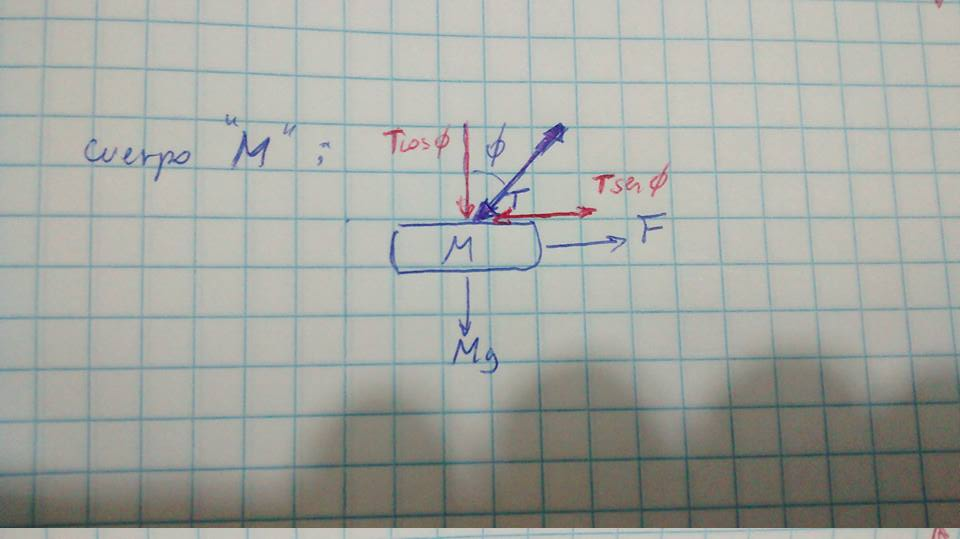 cuerpo "M" :
Tcosϕ
ϕ
T
Tsenϕ
M
F
Mg